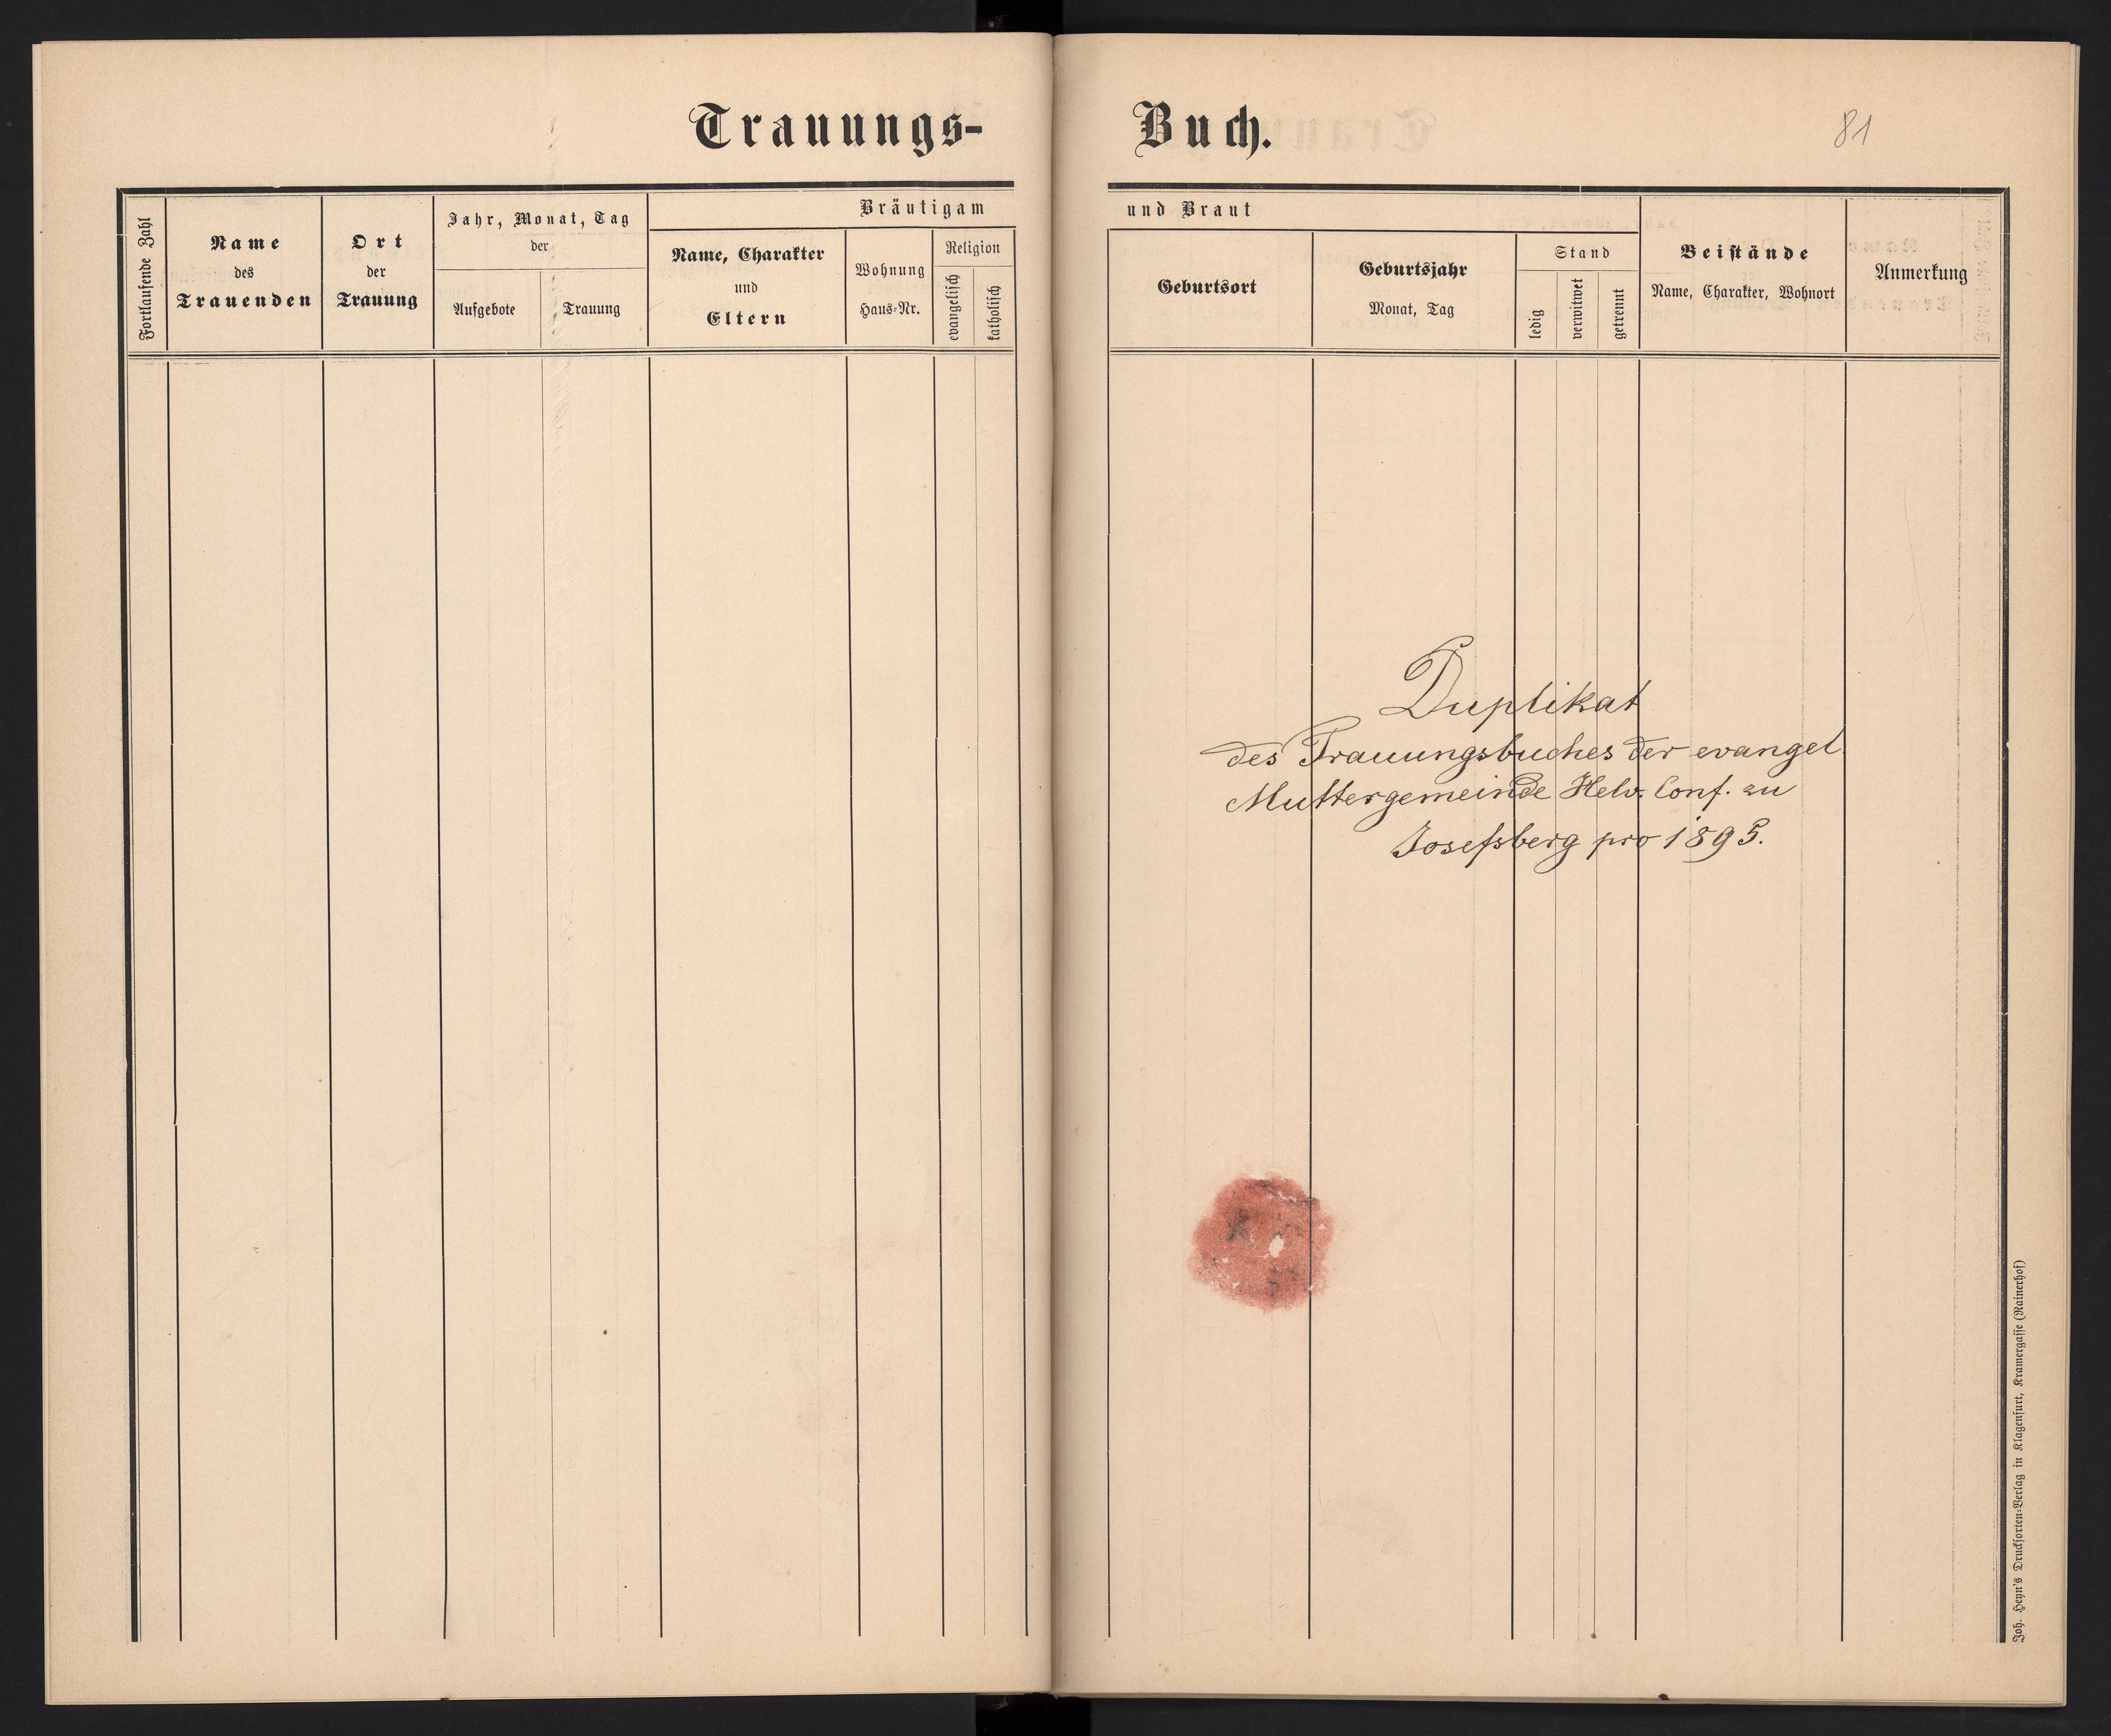 Trauungs-
Buch.
81
Fortlaufende Zahl
Name
des
Trauenden
Ort
der
Trauung
Jahr, Monat, Tag
der
Aufgebote
Trauung
Bräutigam
Name, Charakter
und
Eltern
Wohnung
Haus-Nr.
Religion
evangelisch
katholisch
und Braut
Geburtsort
Geburtsjahr
Monat, Tag
Stand
ledig
verwitwet
getrennt
Beistände
Name, Charakter, Wohnort
Anmerkung
Duplikat
des Trauungsbuches der evangel.
Muttergemeinde Helv. Conf. zu
Josefsberg pro 1895.
Joh. Heyn's Drucksorten-Verlag in Klagenfurt, Kramergasse (Rainerhof)